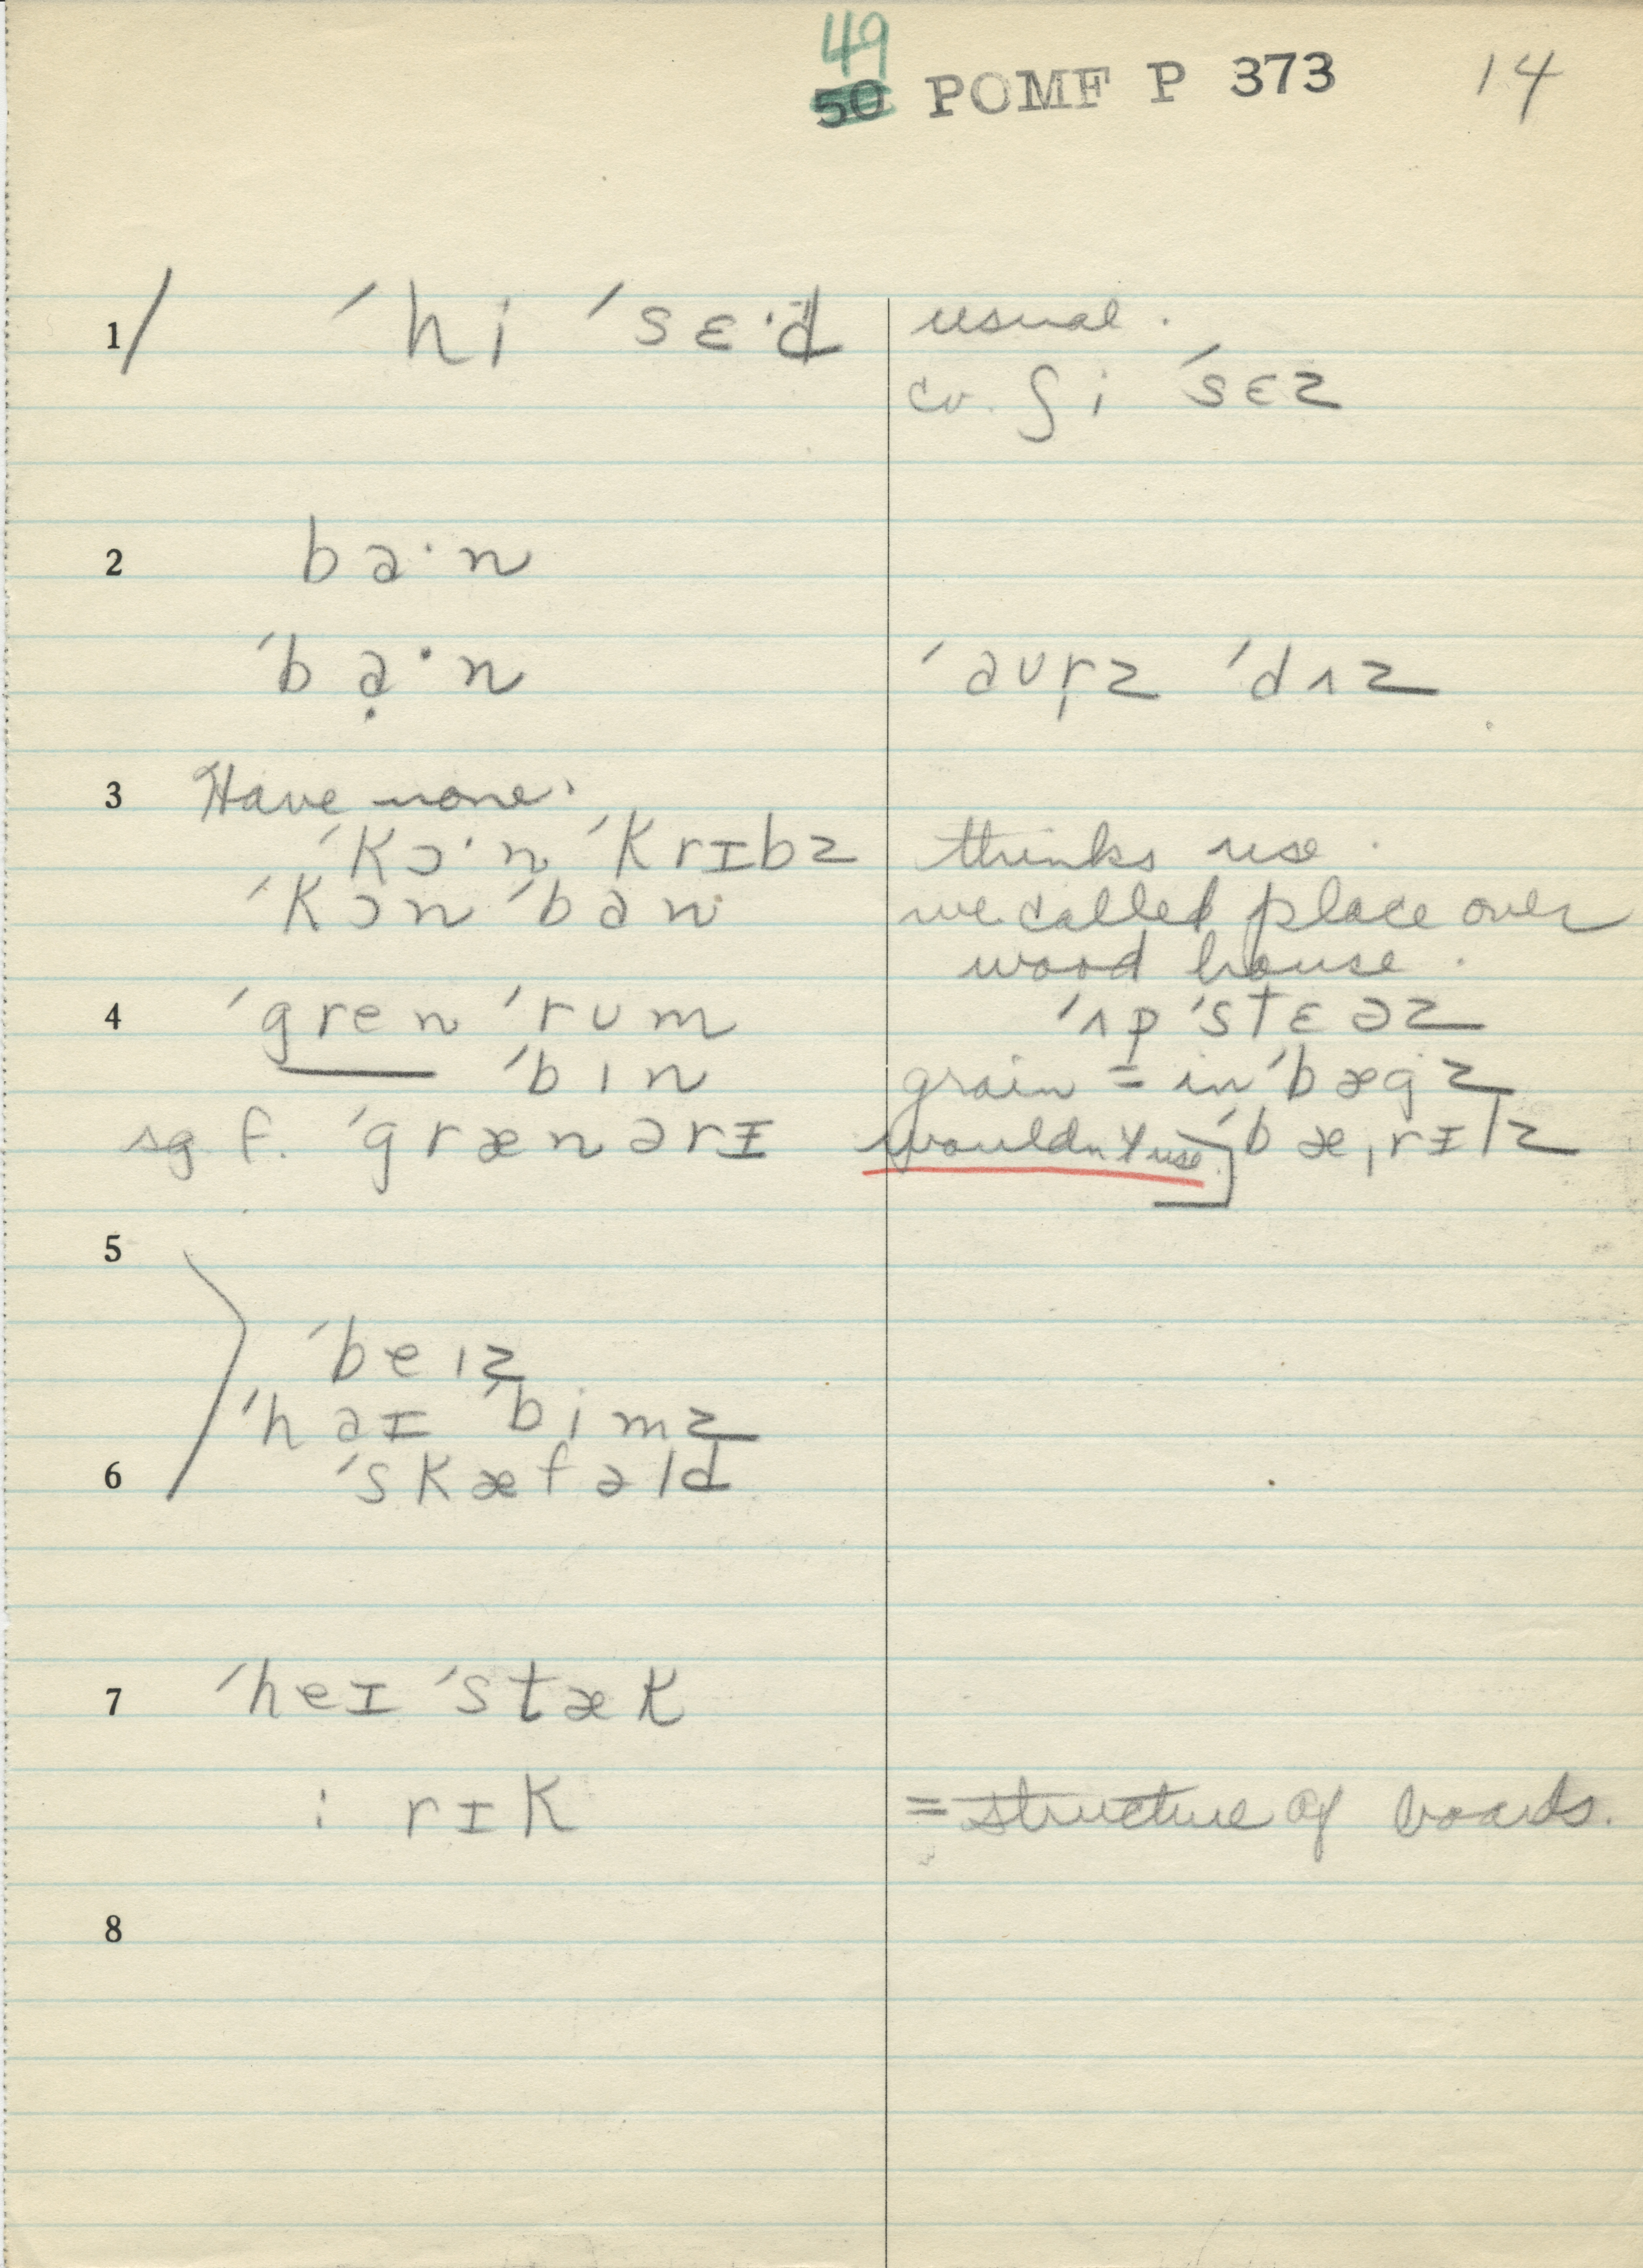 49
50 POMF P 373 14
1/ ˈhi ˈsɛ·d usual.
cv. ʃi ˈsɛz
2 ba·n
ˈbạ·n ˈaʊr̩z ˈdʌz
3 Have none.
ˈkɔ·n ˈkrɪbz thinks use.
ˈkɔn ˈban we called place over
wood house.
4 ˈgren ˈrʊm ˈʌp ˈstɛəz
ˈbɪn grain = in ˈbægz
sg f. ˈgrænərɪ wouldn't use. ˈbæˌrɪlz
5
ˈbeɪz
ˈhaɪ ˈbimz
6 ˈskæfəld
7 ˈheɪ ˈstæk
: rɪk = structure of boards.
8